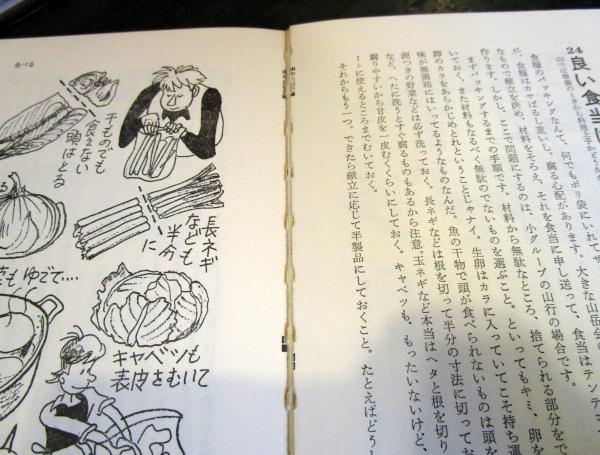 24
良い食当は
食糧のパッキングなんて、何でもポリ袋にいれてザ
が、食糧はかさばるし重いし、腐る心配があります。大きな山岳会の
なもので献立を決め、材料をそろえ、それを食当に申し送って、食当はテンデ
作ります。しかし、ここで問題にするのは、小グループの山行の場合です。
まずパッキングするまでの手順です。材料から無駄なところ、捨てられる部分をで
いておく、また材料もなるべく無駄のでないものを選ぶこと。といってもキミ、卵を
卵のカラをあらかじめとれということじゃナイ。生卵はカラに入っていてこそ持ち運
味が無菌箱にはいってるようなものなんだ。魚の干物で頭が食べられないものは頭を
泥つきの野菜などは必ず洗っておく。長ネギなどは根を切って半分の寸法に切ってお
など、へたに洗うとすぐ腐るものもあるから注意。玉ネギなど本当はヘタと根を切り
腐りやすいから甘皮を一皮むくくらいにしておく。キャベツも、もったいないけど、
ートに使えるところまでむいておく。
それからもう一つ。できたら献立に応じて半製品にしておくこと。たとえばどうし
食べる
干ものでも
食えない
頭はとる
長ネギ
なども
半分
に
もゆでて…
キャベツも
表皮をむいて